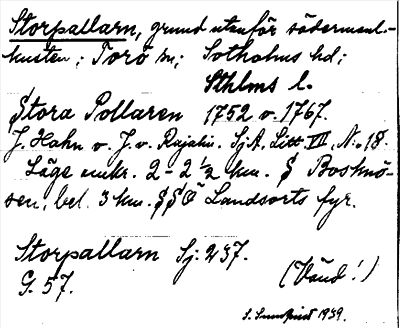 Storpallarn, grund utanför söderman-
kusten; Torö sn; Sotholms hd;
Sthlms l.
Stora Pollaren 1752 o. 1767.
J. Hahn o. J. v. Rajalin. SjA, Litt. VII, N:o 18.
Läge omkr. 2-2 1/2 km. S Boskö-
sen, bel. 3 km. SSO Landsorts fyr.
Storpallarn Sj. 237.
G. 57. (Vänd!)
S. Sundqvist 1939.